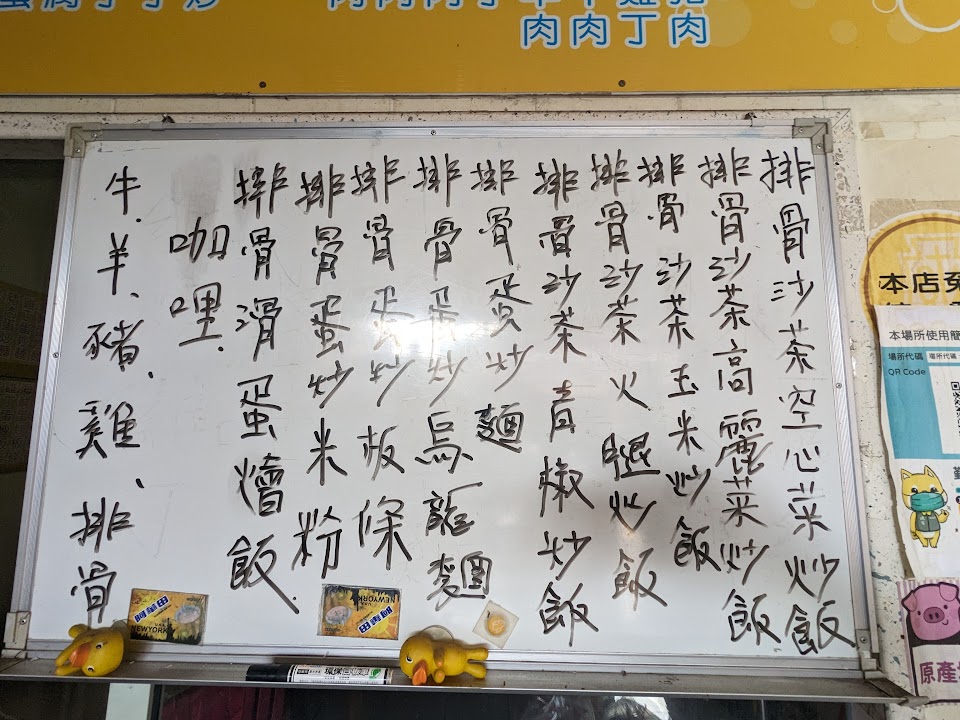 肉肉丁肉
排骨沙茶空心菜炒飯
排骨沙茶高麗菜炒飯
排骨沙茶玉米炒飯
排骨沙茶火腿炒飯
排骨沙茶青椒炒飯
排骨蛋炒麵
排骨蛋炒烏龍麵
排骨蛋炒板條
排骨蛋炒米粉
排骨滑蛋燴飯.
咖哩.
牛、羊、豬、雞、排骨
NEWYORK
NEWYORK
本店免
本場所使用簡
場所代碼
QR Code
原產